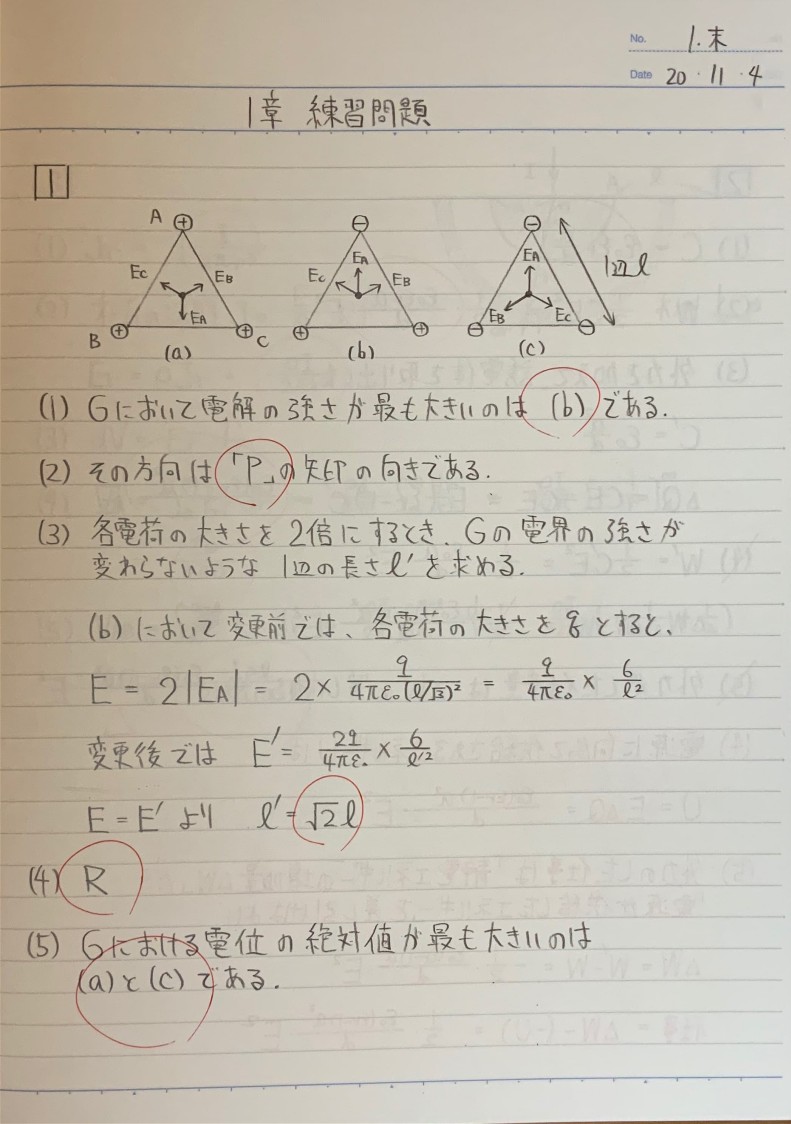 No. 1.末
Date 20・11・4
1章 練習問題
1
A ⊕ ⊖ ⊖
EC EB EC EA EB EA 1辺l
EA EB EC
B ⊕ ⊕ C ⊕ ⊕ ⊖ ⊖
(a) (b) (c)
(1) Gにおいて電解の強さが最も大きいのは (b) である.
(2) その方向は「P」の矢印の向きである.
(3) 各電荷の大きさを2倍にするとき、Gの電界の強さが
変わらないような 1辺の長さl'を求める.
(b)において変更前では、各電荷の大きさをqとすると、
E = 2|EA| = 2× q/4πε₀(l/√3)² = q/4πε₀ × 6/l²
変更後では E' = 2q/4πε₀ × 6/l'²
E = E' より l' = √2 l
(4) R
(5) Gにおける電位の絶対値が最も大きいのは
(a)と(c)である.